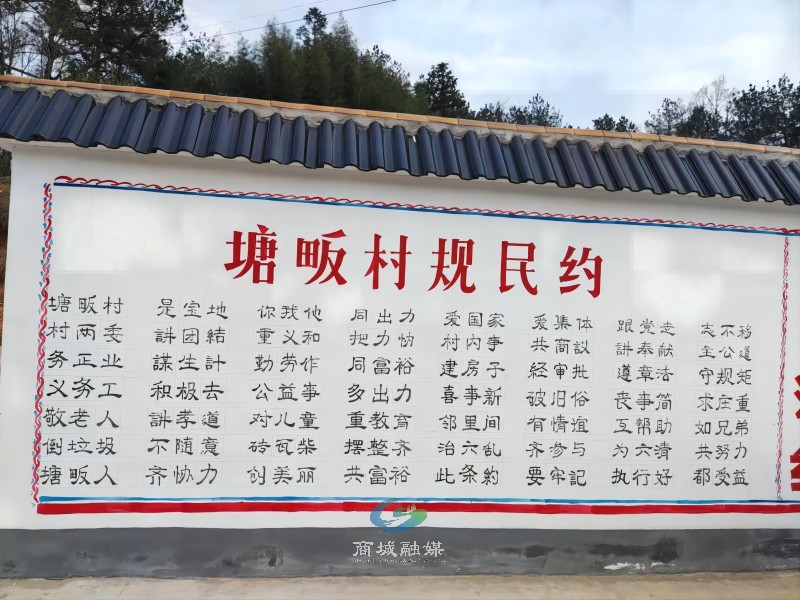 塘畈村规民约
塘畈村 是宝地 你我他 同出力 爱国家 爱集体 跟党走 志不移
村两委 講团結 重义和 把力协 村内事 共商议 讲奉献 主公道
务正业 謀生計 勤劳作 同富裕 建房子 经审批 遵章法 守规矩
义务工 积极去 公益事 多出力 喜事新 破旧俗 丧事简 求庄重
敬老人 講孝道 对儿童 重教育 邻里间 有情谊 互帮助 如兄弟
倒垃圾 不随意 砖瓦柴 摆整齐 治六乱 齐参与 为六清 共努力
塘畈人 齐协力 创美丽 共富裕 此条約 要牢記 执行好 都受益
商城融媒